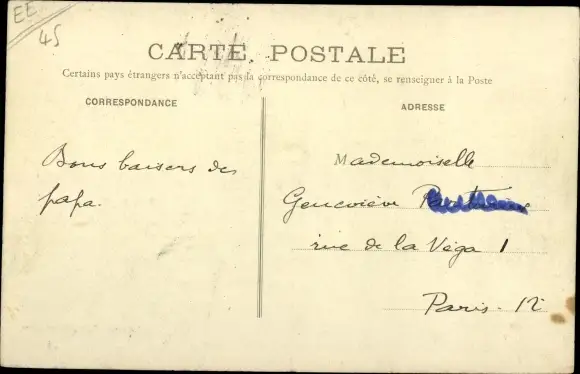 EE
45
CARTE POSTALE
Certains pays étrangers n'acceptant pas la correspondance de ce côté, se renseigner à la Poste
CORRESPONDANCE
ADRESSE
Bons baisers de
papa.
Mademoiselle
Geneviève
rue de la Véga 1
Paris. 12